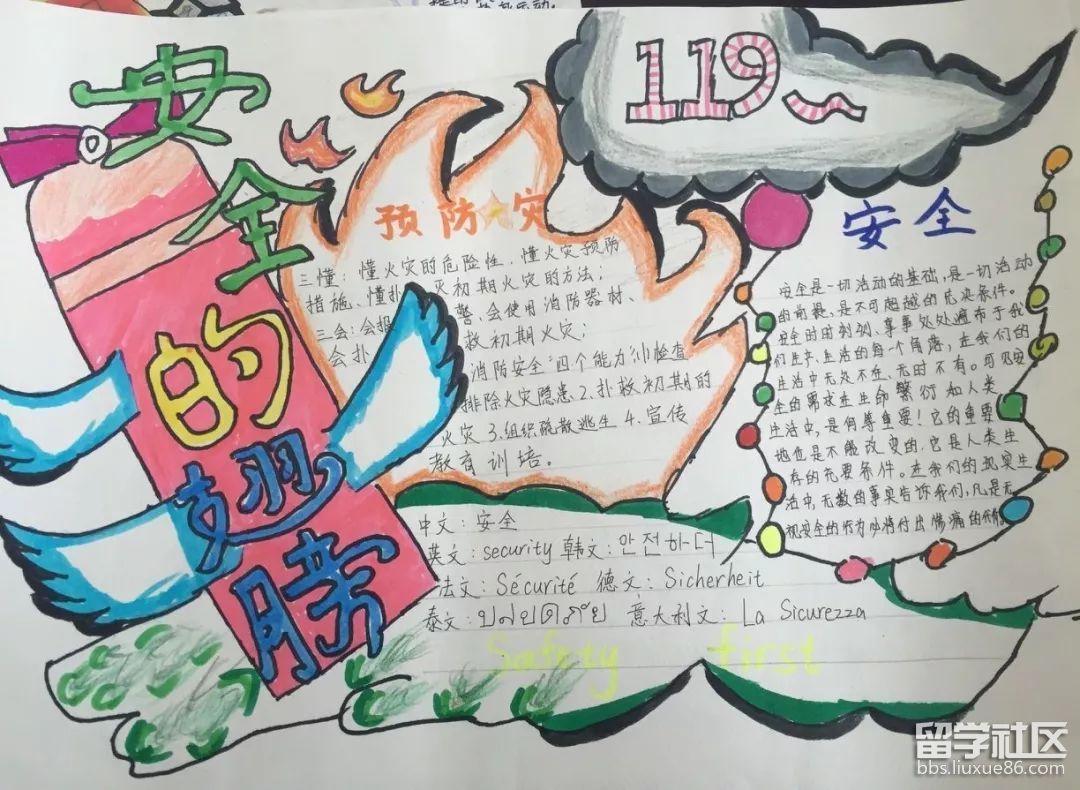 安全的翅膀
119
预防☆灾
三懂：懂火灾的危险性、懂火灾预防
措施、懂扑 灭初期火灾的方法；
三会：会报 警、会使用消防器材、
会扑 救初期火灾；
消防安全“四个能力”：1.检查
排除火灾隐患2.扑救初期的
火灾 3.组织疏散逃生 4.宣传
教育训培。
安全
安全是一切活动的基础，是一切活动
的前提，是不可超越的先决条件。
安全时时刻刻、事事处处遍布于我
们生产、生活的每一个角落，在我们的
生活中无处不在、无时不有。可见安
全的需求在生命繁衍和人类
生活中，是何等重要！它的重要
地位是不能改变的，它是人类生
存的充要条件。在我们的现实生
活中，无数的事实告诉我们，凡是无
视安全的行为必将付出惨痛的代价
中文：安全
英文：security 韩文：안전하다
法文：Sécurité 德文：Sicherheit
泰文： 意大利文：La Sicurezza
Safety first
留学社区
bbs.liuxue86.com